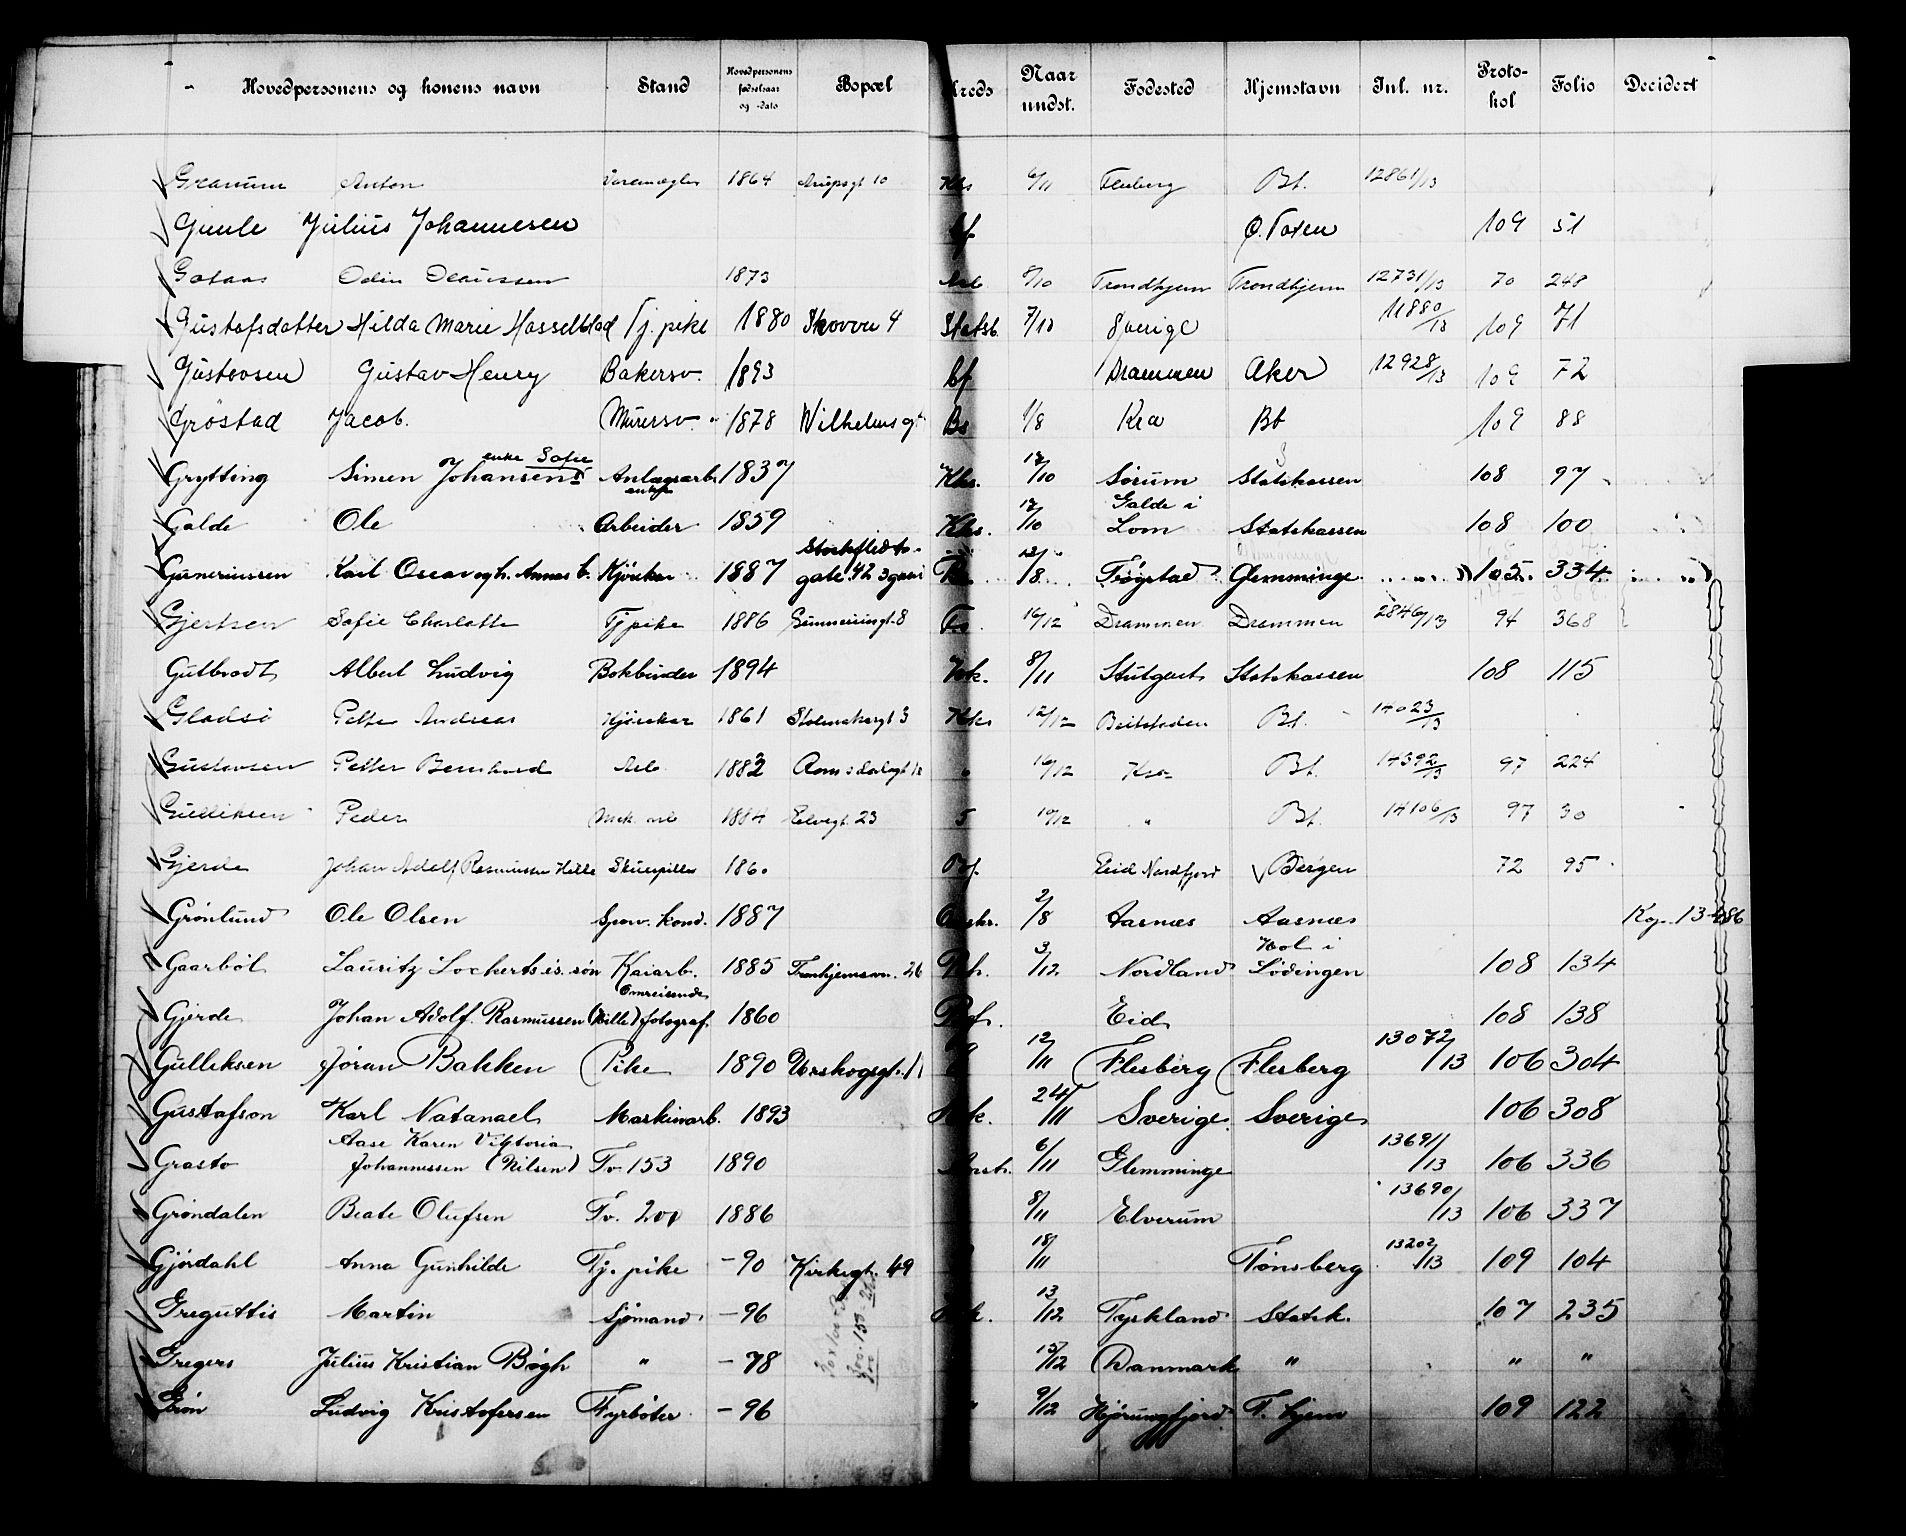 Hovedpersonens og konens navn Stand Hovedpersonens fødselsaar og -dato Bopæl Kreds Naar undst. Fødested Hjemstavn Inl. nr. Protokol Folio Decidert
Granum Anton 1864 Arupsgt 10 6/11 Flesberg Bt. 12861/13
Gimle Julius Johannesen Bf Ø. Toten 109 51
Gataas Odin Claussen 1873 Arb 8/10 Trondhjem Trondhjem 12731/13 70 248
Gustafsdatter Hilda Marie Hasselblad Tj. pike 1880 Skovvn 4 Statsb. 7/10 Sverige 11880/13 109 71
Gustavsen Gustav Henry Bakersv. 1893 Bf Drammen Aker 12928/13 109 72
Grøstad Jacob. Murersv. 1878 Wilhelms gt Bs 1/8 Kra Bt 109 88
Grytting Simen Johansen enke Sofie Anlægsarb. enke 1837 Khs. 17/10 Sørum Statskassen 108 97
Galde Ole Arbeider 1859 Khs. 17/10 Galde i Lom Statskassen 108 100
Guneriussen Karl Oscar og h. Annas b. Kjørekar 1887 Stockfleths-gate 42 3 gaar 12/8 Trøgstad Glemminge 105 334
Gjertsen Sofie Charlotte Tjpike 1886 8 16/12 Drammen Drammen 2846/13 94 368
Gutbrodt Albert Ludvig Bokbinder 1894 Vok. 8/11 Stutgart Statskassen 108 115
Gladsø Petter Andreas Kjørekar 1861 3 Khs 12/12 Beitstaden Bt. 14023/13
Gustavsen Petter Bernhard Arb 1882 Romsdalsgt 12 16/12 Kra Bt. 14392/13 97 224
Gulliksen Peder Mek. arb 1884 Eelvegt. 23 5 10/12 " Bt. 14106/13 97 30
Gjerde Johan Adolf Rasmussen Hille Skuespiller 1860 Bf. Eid Nordfjord Bergen 72 95
Grønlund Ole Olsen Sporv. kond. 1887 2/8 Aasnæs Aasnæs
Gaarbøl Lauritz Lockerts is. søn Kaiarb. 1885 Tronhjemsvn. 26 3/12 Nordland Hol i Lødingen 108 134
Gjerde Johan Adolf Rasmussen (Hille) Omreisende fotograf. 1860 Eid 108 138
Gulleksen Jøran Bakken Pike 1890 Urskogsgt. 11 12/11 Flesberg Flesberg 13072/13 106 304
Gustafson Karl Natanael Maskinarb. 1893 24/11 Sverige Sverige 106 308
Grasto Aase Karen Viktoria Johannessen (Nilsen) Tv. 153 1890 6/11 Glemminge 13691/13 106 336
Grøndalen Beate Olufsen Tv. 201 1886 8/11 Elverum 13690/13 106 337
Gjørdahl Anna Gunhilde Tj. pike - 90 Kirkegt. 49 18/11 Tønsberg 13202/13 109 104
Greguttis Martin Sjømand - 96 13/12 Tyskland Statsk. 107 235
Gregers Julius Kristian Bøgh " - 78 15/12 Danmark " " "
Grøn Ludvig Kristofersen Fyrbøter - 96 " 9/12 Hjørungfjord T. hjem 109 122